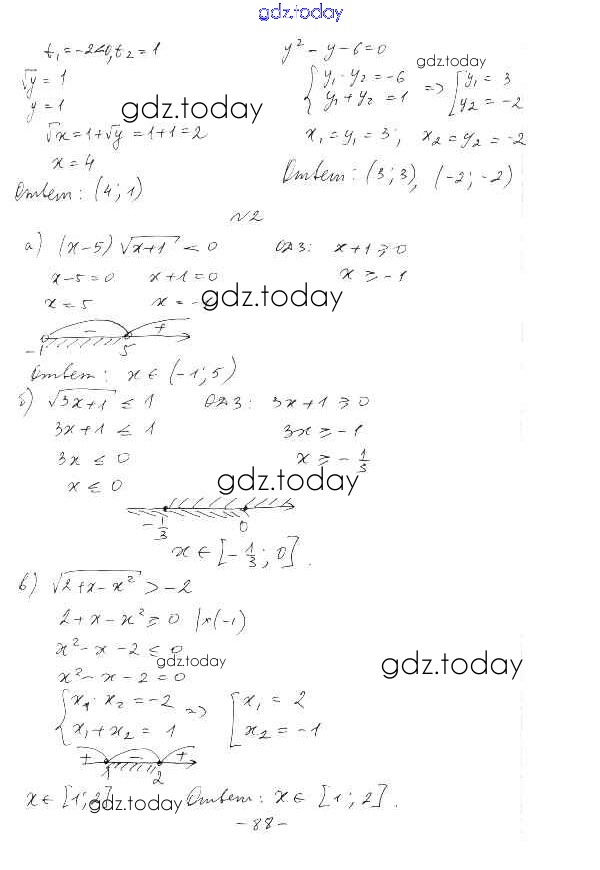 gdz.today
t₁ = -2 < 0, t₂ = 1
√y = 1
y = 1
√x = 1 + √y = 1 + 1 = 2
x = 4
Ответ: (4; 1)
y² - y - 6 = 0
{ y₁ · y₂ = -6 => [ y₁ = 3
y₁ + y₂ = 1 y₂ = -2
x₁ = y₁ = 3; x₂ = y₂ = -2
Ответ: (3; 3), (-2; -2)
gdz.today
gdz.today
№2
а) (x-5) √x+1 < 0 ОДЗ: x+1 ⩾ 0
x-5=0 x+1=0 x ⩾ -1
x=5 x = -
gdz.today
- +
-1 5
Ответ: x ∈ (-1; 5)
б) √3x+1 ≤ 1 ОДЗ: 3x+1 ⩾ 0
3x+1 ≤ 1 3x ⩾ -1
3x ≤ 0 x ⩾ -1/3
x ≤ 0
gdz.today
-1/3 0
x ∈ [-1/3; 0].
в) √2+x-x² > -2
2+x-x² ⩾ 0 |×(-1)
x² - x - 2 ≤ 0
gdz.today
gdz.today
x² - x - 2 = 0
{ x₁ · x₂ = -2 => [ x₁ = 2
x₁ + x₂ = 1 x₂ = -1
+ - +
1 2
x ∈ [1; 2] Ответ: x ∈ [1; 2].
gdz.today
- 88 -